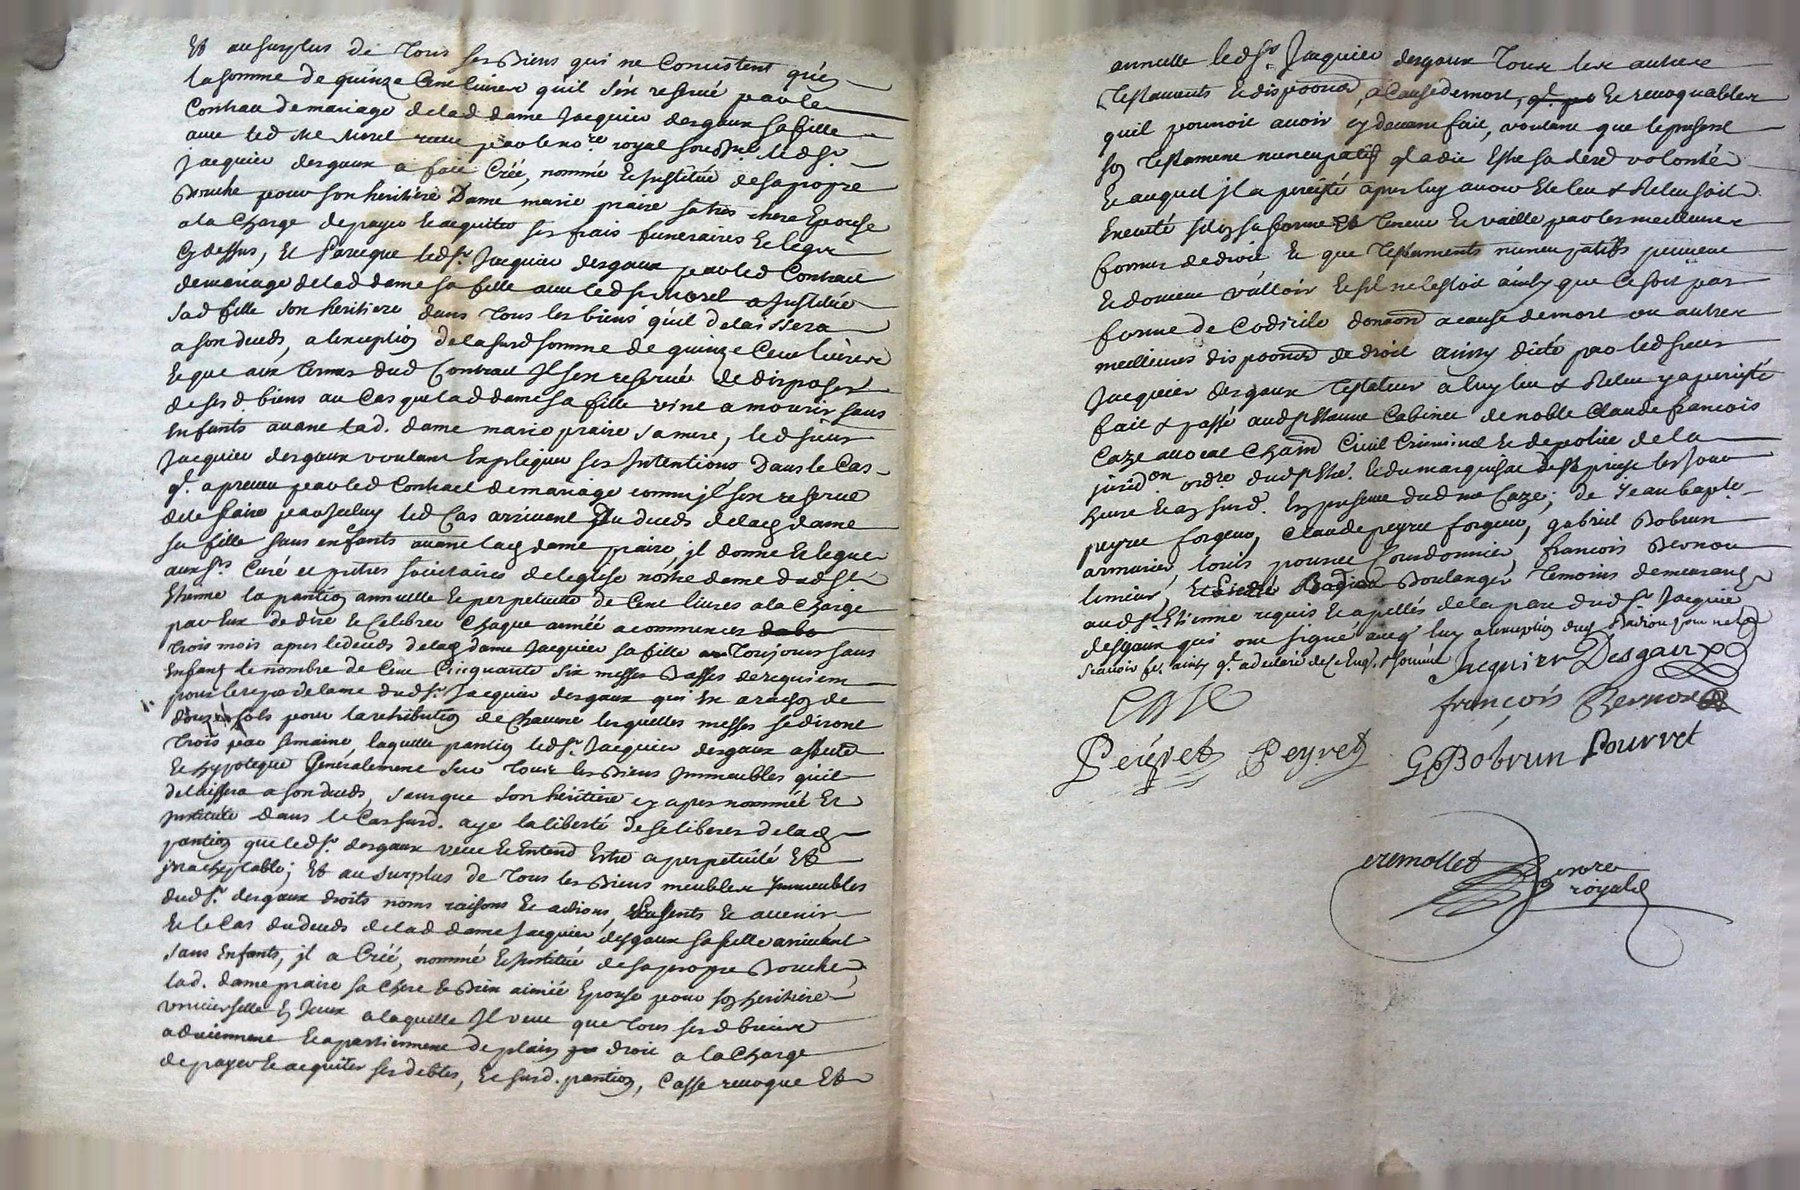 Et au surplus de tous ses biens qui ne consistent qu'en
la somme de quinze cent livres qu'il s'en reservé par le
contrau de mariage de lad dame Jacquier desgaux sa fille
avec led Me Morel receu par le no.re royal soussné. led Sr.
jacquier desgaux a fait Créé, nommé et Justitué de sa propre
Bouche pour son heritiere Dame marie praire sa tres chere Epouse
a la Charge de payer et acquiter ses frais funeraires et legs
Cy dessus, Et parceque led Sr. Jacquier desgaux par led Contract
de mariage de lad dame sa fille avec led Sr Morel a Justitué
sad fille son heritiere dans tous les biens qu'il delaissera
a son deceds, a lexception de la susd somme de quinze Cent livres
et que aux termes dud Contract Il s'en reservé de disposer
de ses d biens au Cas que lad dame sa fille vint a mourir sans
Enfants avant lad. dame marie praire sa mere, led sieur
Jacquier desgaux voulant Expliquer ses Jntentions dans le Cas
qt. a preveu par led Contract de mariage comme jl s'en reservé
de le faire par Jceluy led Cas arrivant du deceds de lad dame
sa fille sans enfants avant lad dame praire, jl donne et legue
aux Srs Curé et pretres societaires de leglise nôtre dame dud St.
Etienne la pantion annuelle et perpetuelle de Cent livres a la charge
par Eux de dire et Celebrer chaque année a commencer
trois mois apres le deceds de lad dame Jacquier sa fille toujours sans
Enfans le nombre de Cent Cinquante six messes Basses de requiem
pour le repos de lame dud Sr. Jacquier desgaux qui En a raison de
douze sols pour la retribution de chacune lesquelles messes se diront
trois par semaine, laquelle pantion led Sr. Jacquier desgaux assure
et hypoteque Generalement sur tous les Biens Jmmeubles qu'il
delaissera a son deceds, sans que son heritiere cy apres nommée Et
justituée dans le Cas susd. aye la liberté de se liberer de lad
pantion que led Sr. desgaux veut et Entend Estre a perpetuité Et
jrracheptable; Et au surplus de tous les Biens meubles Jmmeubles
dud Sr. desgaux droits noms raisons et actions, presents et avenir
Et le Cas du deceds de lad dame Jacquier desgaux sa fille arrivant
sans Enfants, jl a Créé, nommé et Justitué de sa propre Bouche
lad. dame praire sa chere et Bien aimée Epouse pour son heritiere
universelle a laquelle Jl veut que tous ses d biens
adviennent et apartiennent de plain droit a la Charge
de payer et acquiter ses debtes, et susd. pantion, Casse revoque Et
annulle led Sr. Jacquier desgaux tous les autres
testaments et dispoons, a Cause de mort, et revoquables
quil pourroit avoir cy devant fait, voulant que le present
son testament nuncupatif qt a dit Estre sa dere volonté
et auquel jl a percisté apres luy avoir Eté leu & Releu soit
Executé selon sa forme Et teneur et vaille par les meilleures
formes de droit et que testaments nuncupatifs peuvent
et doivent valloir et sil ne lestoit ainsy que ce soit par
forme de Codicile donaon a cause de mort ou autres
meilleures dispoons de droit ainsy dicté par led sieur
Jacquier desgaux testateur a luy leu & Releu y a percisté
fait & passé aud St Etienne Cabinet de noble Claude francois
Caze avocat Chatn Civil Criminel et de police de la
jurid.on ord.re dud St Eté. et du marquisat de St priest les jour
heure et an susd. En presence dud me Caze; de Jean Bapte.
peyret forgeur, Claude peyret forgeur, gabriel Bobrun
armurier, louis pourret Courdonnier, francois Bernou
limeur, Et Boulanger temoins demeurants
aud St. Etienne requis et apellés de la part dud Sr. Jacquier
desgaux qui ont signé avec luy a lexception dud Badiou pour ne le
scavoir fe. ainsy qt. a declaré de ce Enqs. & sommé
Jacquier Desgaux
CAZE
françois Bernou
Peyret Peyret GBobrun Pourret
cremollet no.re
royal